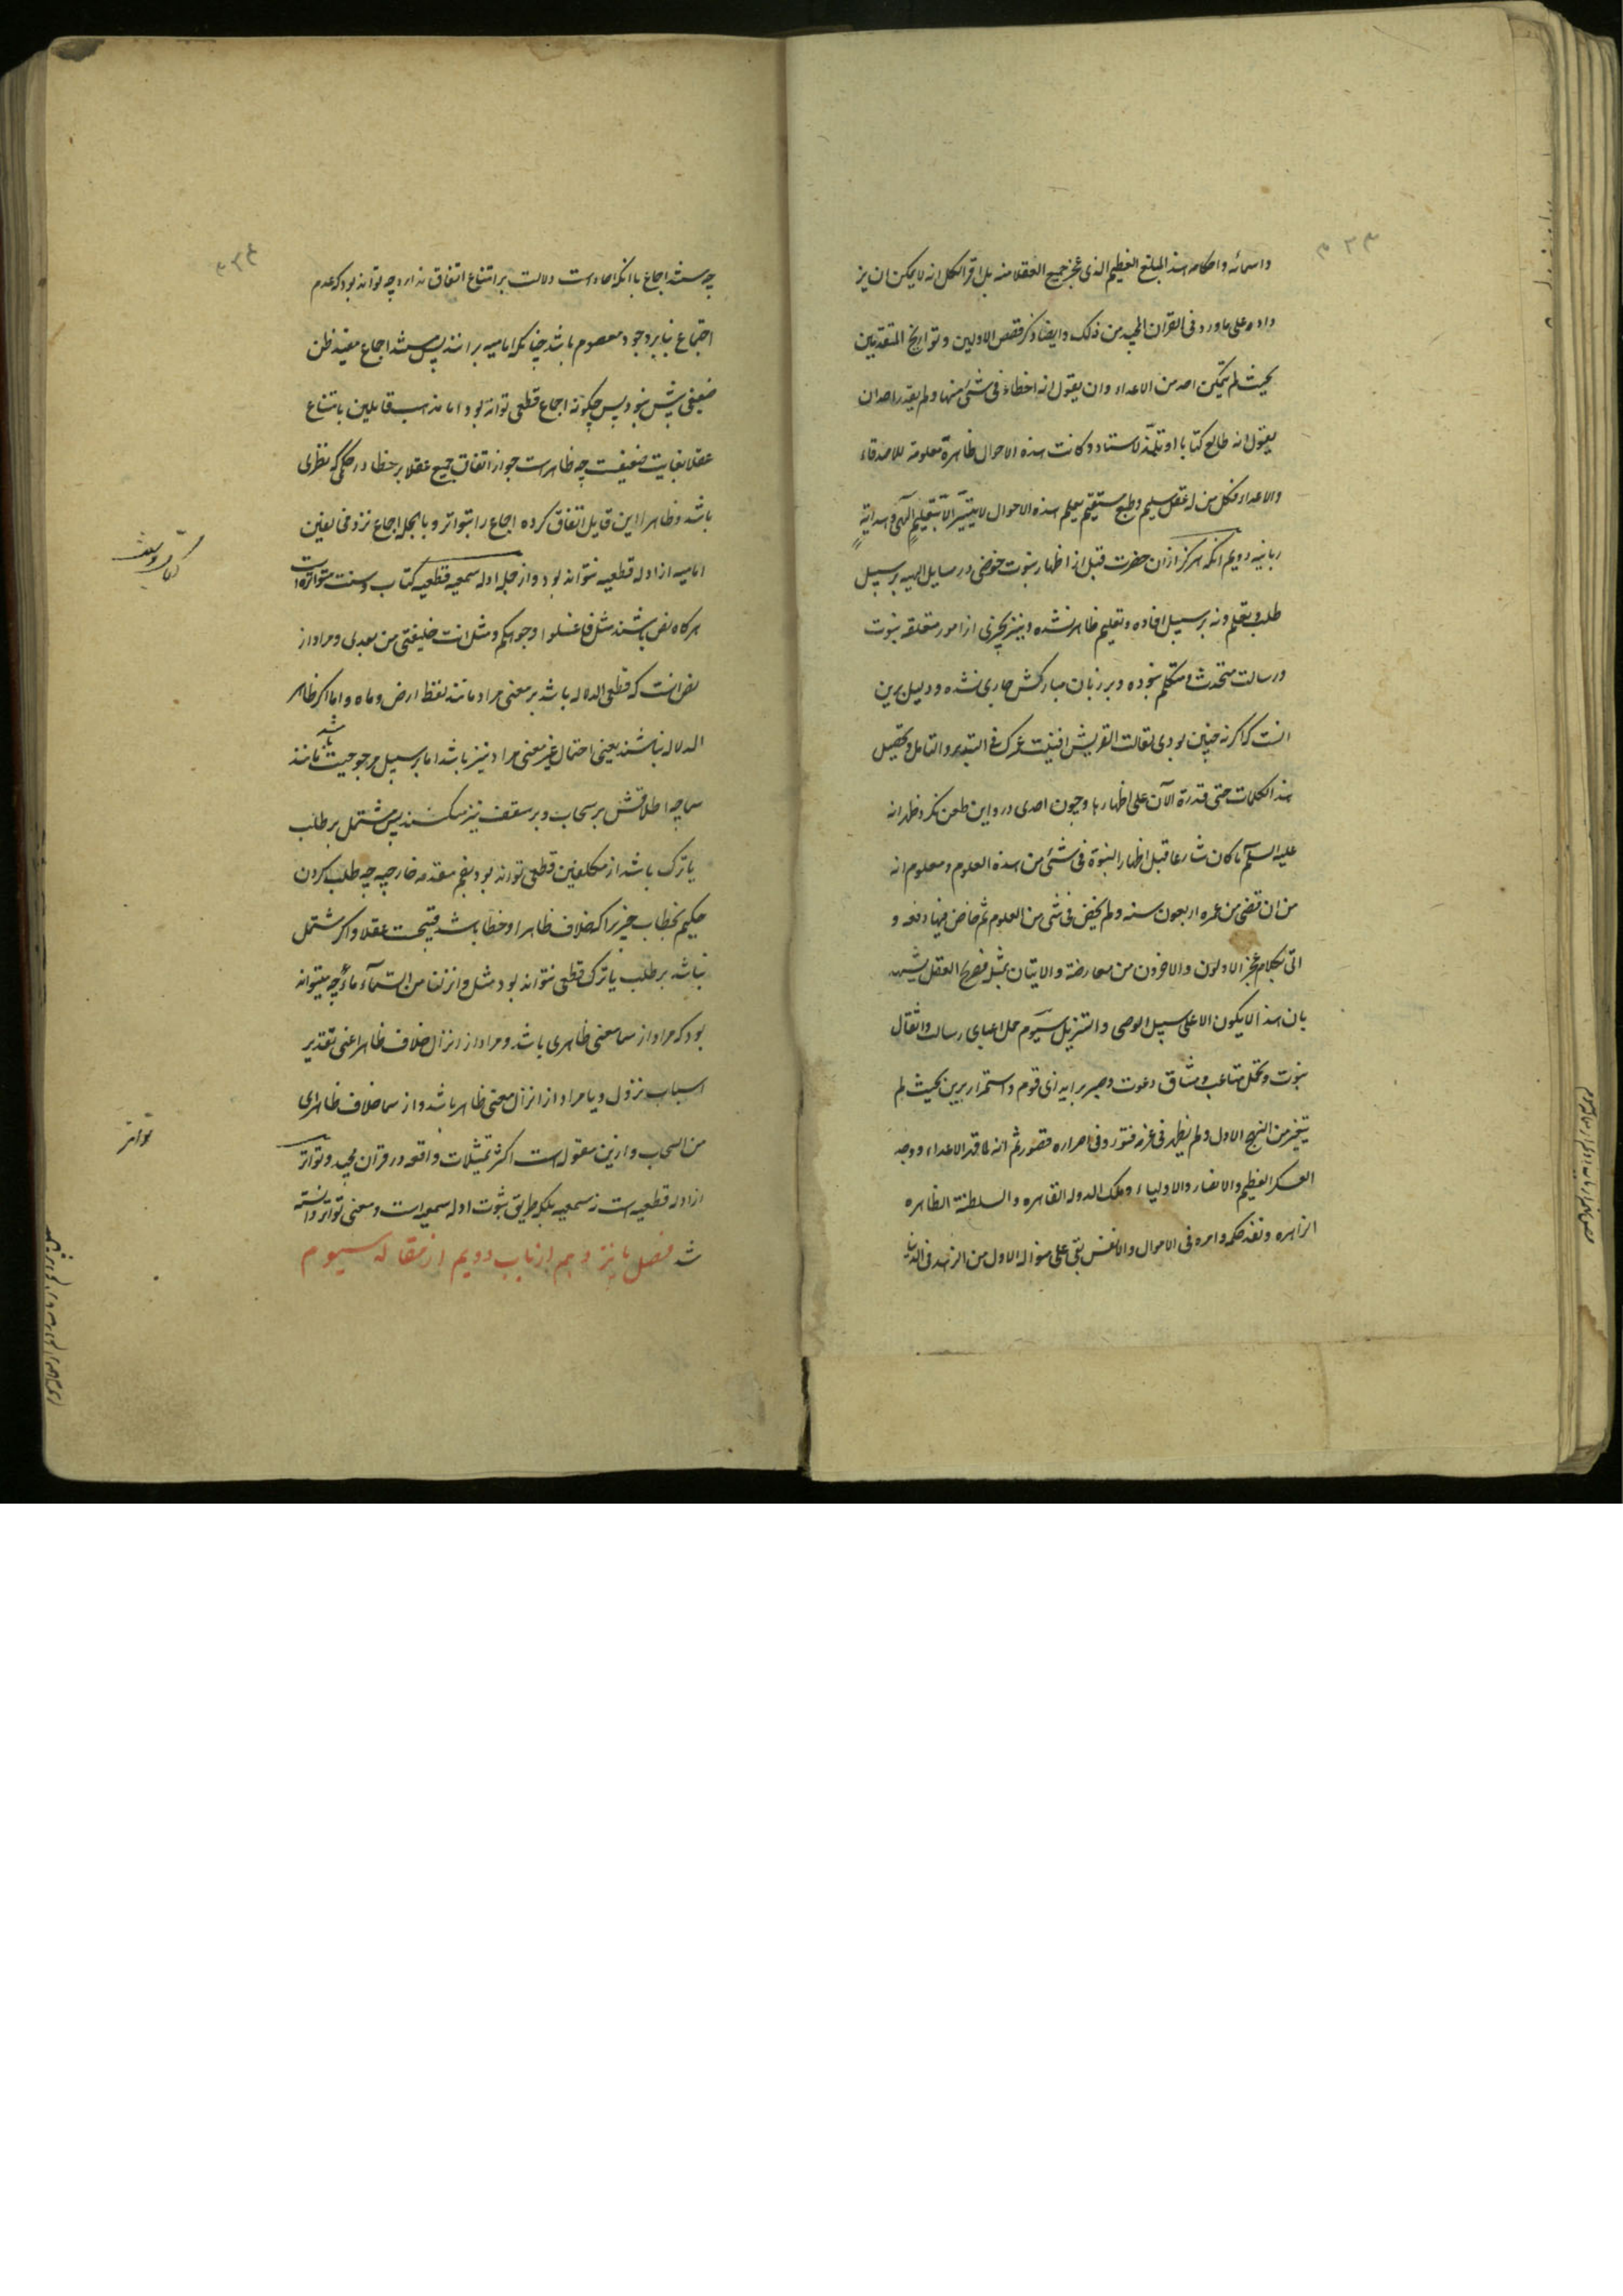 ۳۲۳
واسمائه واحكامه هذا المبلغ العظيم الذى عجز جميع العقلا منه بل اقر الكل انه لا يمكن ان يز
داد على ما ورد فى القران المجيد من ذلك وايضا ذكر قصص الاولين وتواريخ المتقدمين
بحيث لم يتمكن احد من الاعداء وان يقول انه اخطاء فى شئ منها ولم يقدر احد ان
يقول انه طالع كتابا او تلمذ لاستاد وكانت هذه الاحوال ظاهرة معلومة للاصدقاء
والاعداء فكل من له عقل سليم وطبع مستقيم يعلم هذه الاحوال لا يتيسر الا بتعليم آلهى وهداية
ربانيه دويم انكه هركز ازان حضرت قبل از اظهار نبوت خوضى در مسايل الهيه بر سبيل
طلب وتعلم ونه بر سبيل افاده وتعليم ظاهر نشده وبيز بچزى از امور متعلقه بنبوت
ورسالت متحدث ومتكلم نبوده وبر زبان مباركش جارى نشده ودليل برين
انست كه اكر نه چنين بودى لقالت القريش افنيت عمرك فى التدبير والتامل وتحصيل
هذه الكلمات حتى قدرة الآن على اظهارها وچون احدى درو اين طعن نكرد ظهر انه
عليه السلم ما كان شارعا قبل اظهار النبوة فى شئ من هذه العلوم ومعلوم انه
من انقضى من عمره اربعون سنه ولم يخض فى شى من العلوم ثم خاض فيها دفعه و
اتى بكلام عجز الاولون والاخرون من معارضة والاتيان بمثل فصريح العقل يشهد
بان هذا لا يكون الا على سبيل الوحى والتنزيل سيوم حمل اعباى رسالت واثقال
نبوت وتحمل متاعب ومشاق دعوت وصبر بر ايذاى قوم واستمرار برين بحيث لم
يتغير من النهج الاول ولم يظهر فى عزمه فتور وفى اصراره قصور ثم انه لما قهر الاعداء ووجد
العسكر العظيم والانصار والاولياء وملك الدوله القاهره والسلطنة الظاهره
الزاهره ونفذ حكمه وامره فى الاموال والانفس بقى على منواله الاول من الزهد فى الدنيا
۳۲٤
چه سند اجماع با انكه احاد است دلالت بر امتناع اتفاق ندارد چه تواند بود كه عدم
اجتماع بنا بر وجود معصوم باشد چنانكه اماميه برانند پس سند اجماع مفيد ظن
ضعيفى بيش نبود پس چكونه اجماع قطعى تواند بود اما مذهب قايلين بامتناع
عقلا بغايت ضعيفست چه ظاهرست جواز اتفاق جميع عقلا بر خطا در حكمى كه نظرى
باشد وظاهرا اين قايل اتفاق كرده اجماع را بتواتر وبالجمله اجماع نزد مخالفين
اماميه از ادله قطعيه نتواند بود واز جمله ادله سمعيه قطعيه كتاب وسنت متواتره است
هركاه نص باشند مثل فاغسلوا وجوهكم ومثل انت خليفتى من بعدى ومراد از
نص انست كه قطعى الدلاله باشد بر معنى مراد مانند لفظ ارض وماه واما اكر ظاهر
الدلاله باشند يعنى احتمال غير معنى مراد نيز باشد اما بر سبيل مرجوحيت باشد مانند
سما چه اطلاقش بر سحاب وبر سقف نيز ميكنند پس مشتمل بر طلب
يا ترك باشد از مكلفين قطعى تواند بود بضم مقدمه خارجيه چه طلب كردن
حكيم بخطاب چيزيرا كه خلاف ظاهر او خطا باشد قبيحست عقلا واكر مشتمل
نباشد بر طلب يا ترك قطعى نتواند بود مثل وانزلنا من السماء ماء چه ميتواند
بود كه مراد از سما معنى ظاهرى باشد ومراد از انزال خلاف ظاهر اعنى تقدير
اسباب نزول ويا مراد از انزال معنى ظاهر باشد واز سما خلاف ظاهر اى
من السحاب وازين مقوله است اكثر تمثيلات واقعه در قران مجيد وتواتر
از ادله قطعيه است نه سمعيه بلكه طريق ثبوت ادله سمعيه است ومعنى تواتر دانسته
شد فصل پانزدهم از باب دويم از مقاله سيوم
تواتر